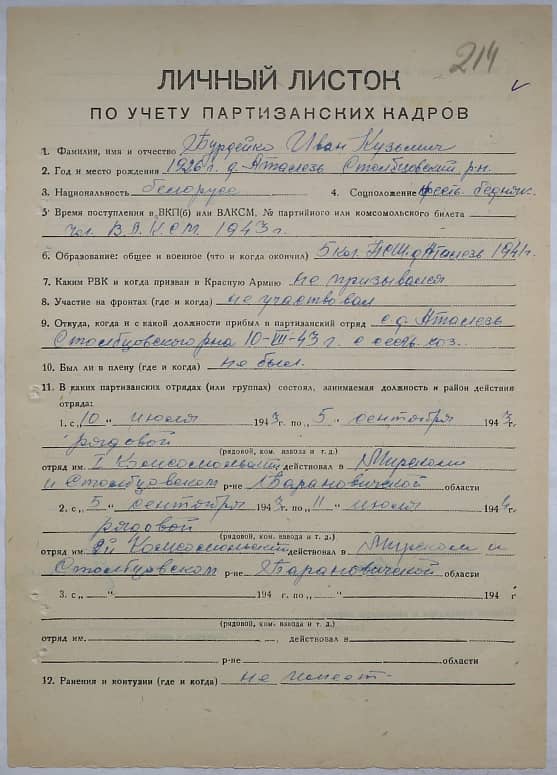 214
ЛИЧНЫЙ ЛИСТОК
ПО УЧЕТУ ПАРТИЗАНСКИХ КАДРОВ
1. Фамилия, имя и отчество Бурдейко Иван Кузьмич
2. Год и место рождения 1926 г. д. Аталезь Столбцовский р-н.
3. Национальность белорусс 4. Соцположение крест. бедняк.
5. Время поступления в ВКП(б) или ВЛКСМ, № партийного или комсомольского билета
чл. В.Л.К.С.М. 1943 г.
6. Образование: общее и военное (что и когда окончил) 5 кл. НСШ д. Аталезь 1941 г.
7. Каким РВК и когда призван в Красную Армию не призывался
8. Участие на фронтах (где и когда) не участвовал
9. Откуда, когда и с какой должности прибыл в партизанский отряд с д. Аталезь
Столбцовского р-на 10-VII-43 г. с сельск. хоз.
10. Был ли в плену (где и когда) не был.
11. В каких партизанских отрядах (или группах) состоял, занимаемая должность и район действия
отряда:
1. с „10" июля 1943 г. по „5" сентября 1943 г.
рядовой
(рядовой, ком. взвода и т. д.)
отряд им. I Комсомольский действовал в Мирском
и Столбцовском р-не Барановичской области
2. с „5" сентября 1943 г. по „11" июля 1944 г.
рядовой
(рядовой, ком. взвода и т. д.)
отряд им. 2й Комсомольский действовал в Мирском и
Столбцовском р-не Барановичской области
3. с „ " 194 г. по „ " 194 г
(рядовой, ком. взвода и т. д.)
отряд им. , действовал в
р-не области
12. Ранения и контузии (где и когда) не имеет